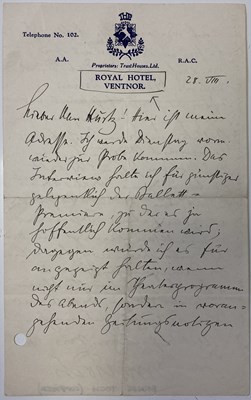 Telephone No. 102.
A.A.
R.A.C.
Proprietors: Trust Houses, Ltd.
ROYAL HOTEL,
VENTNOR.
28. VIII.
Lieber Herr Kurtz – Hier ist mein
Adresse. Ich werde Dienstag vorm.
wieder zur Probe kommen. Das
Interview halte ich für günstiger
gelegentlich der Ballett-
Premiere, zu der es ja
hoffentlich kommen wird,
dagegen würde ich es für
angezeigt halten, wenn
nicht nur im Theaterprogramm
des Abends, sondern in voran-
gehenden Zeitungsnotizen